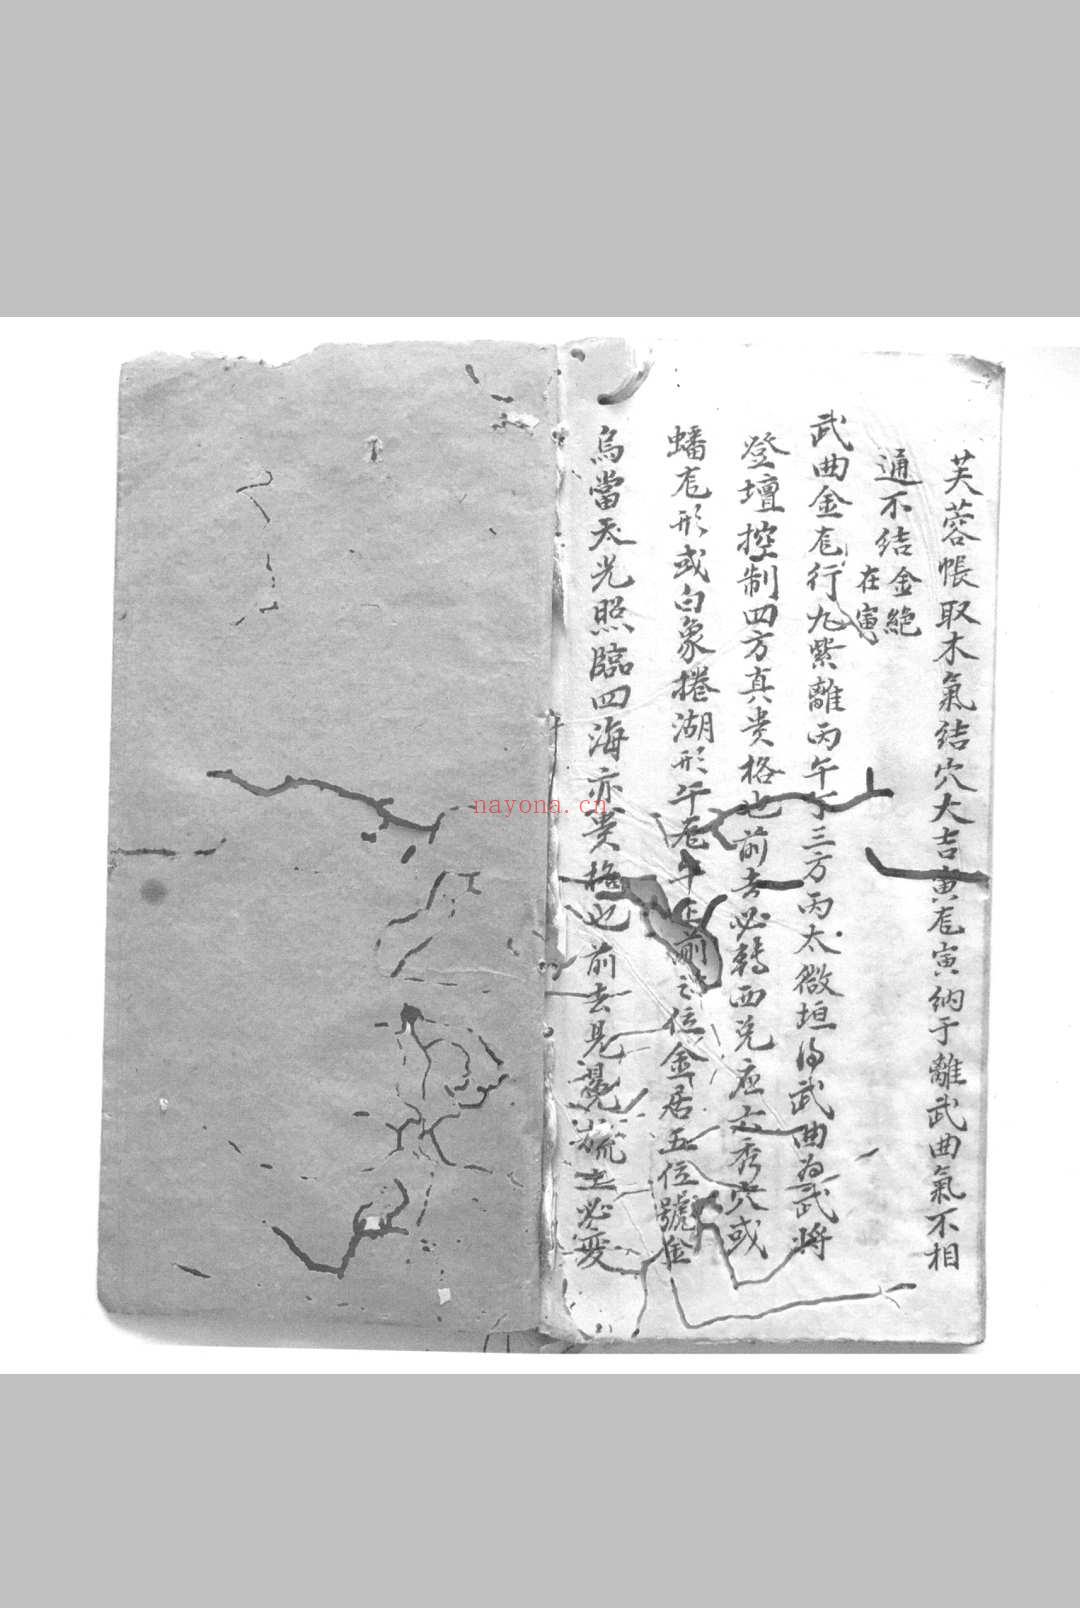 芙蓉帳取木氣結穴大吉寅龙寅納于離武曲氣不相
通不結金絶
在寅
武曲金龙行九紫離丙午丁三方丙太微垣得武曲為武將
登壇控制四方真贵格也前去必轉西兑应六秀穴或
蟠龙形或白象捲湖形午龙午正前之位金居五位號金
烏當天光照臨四海亦贵格也前去見巽土必变
nayona.cn